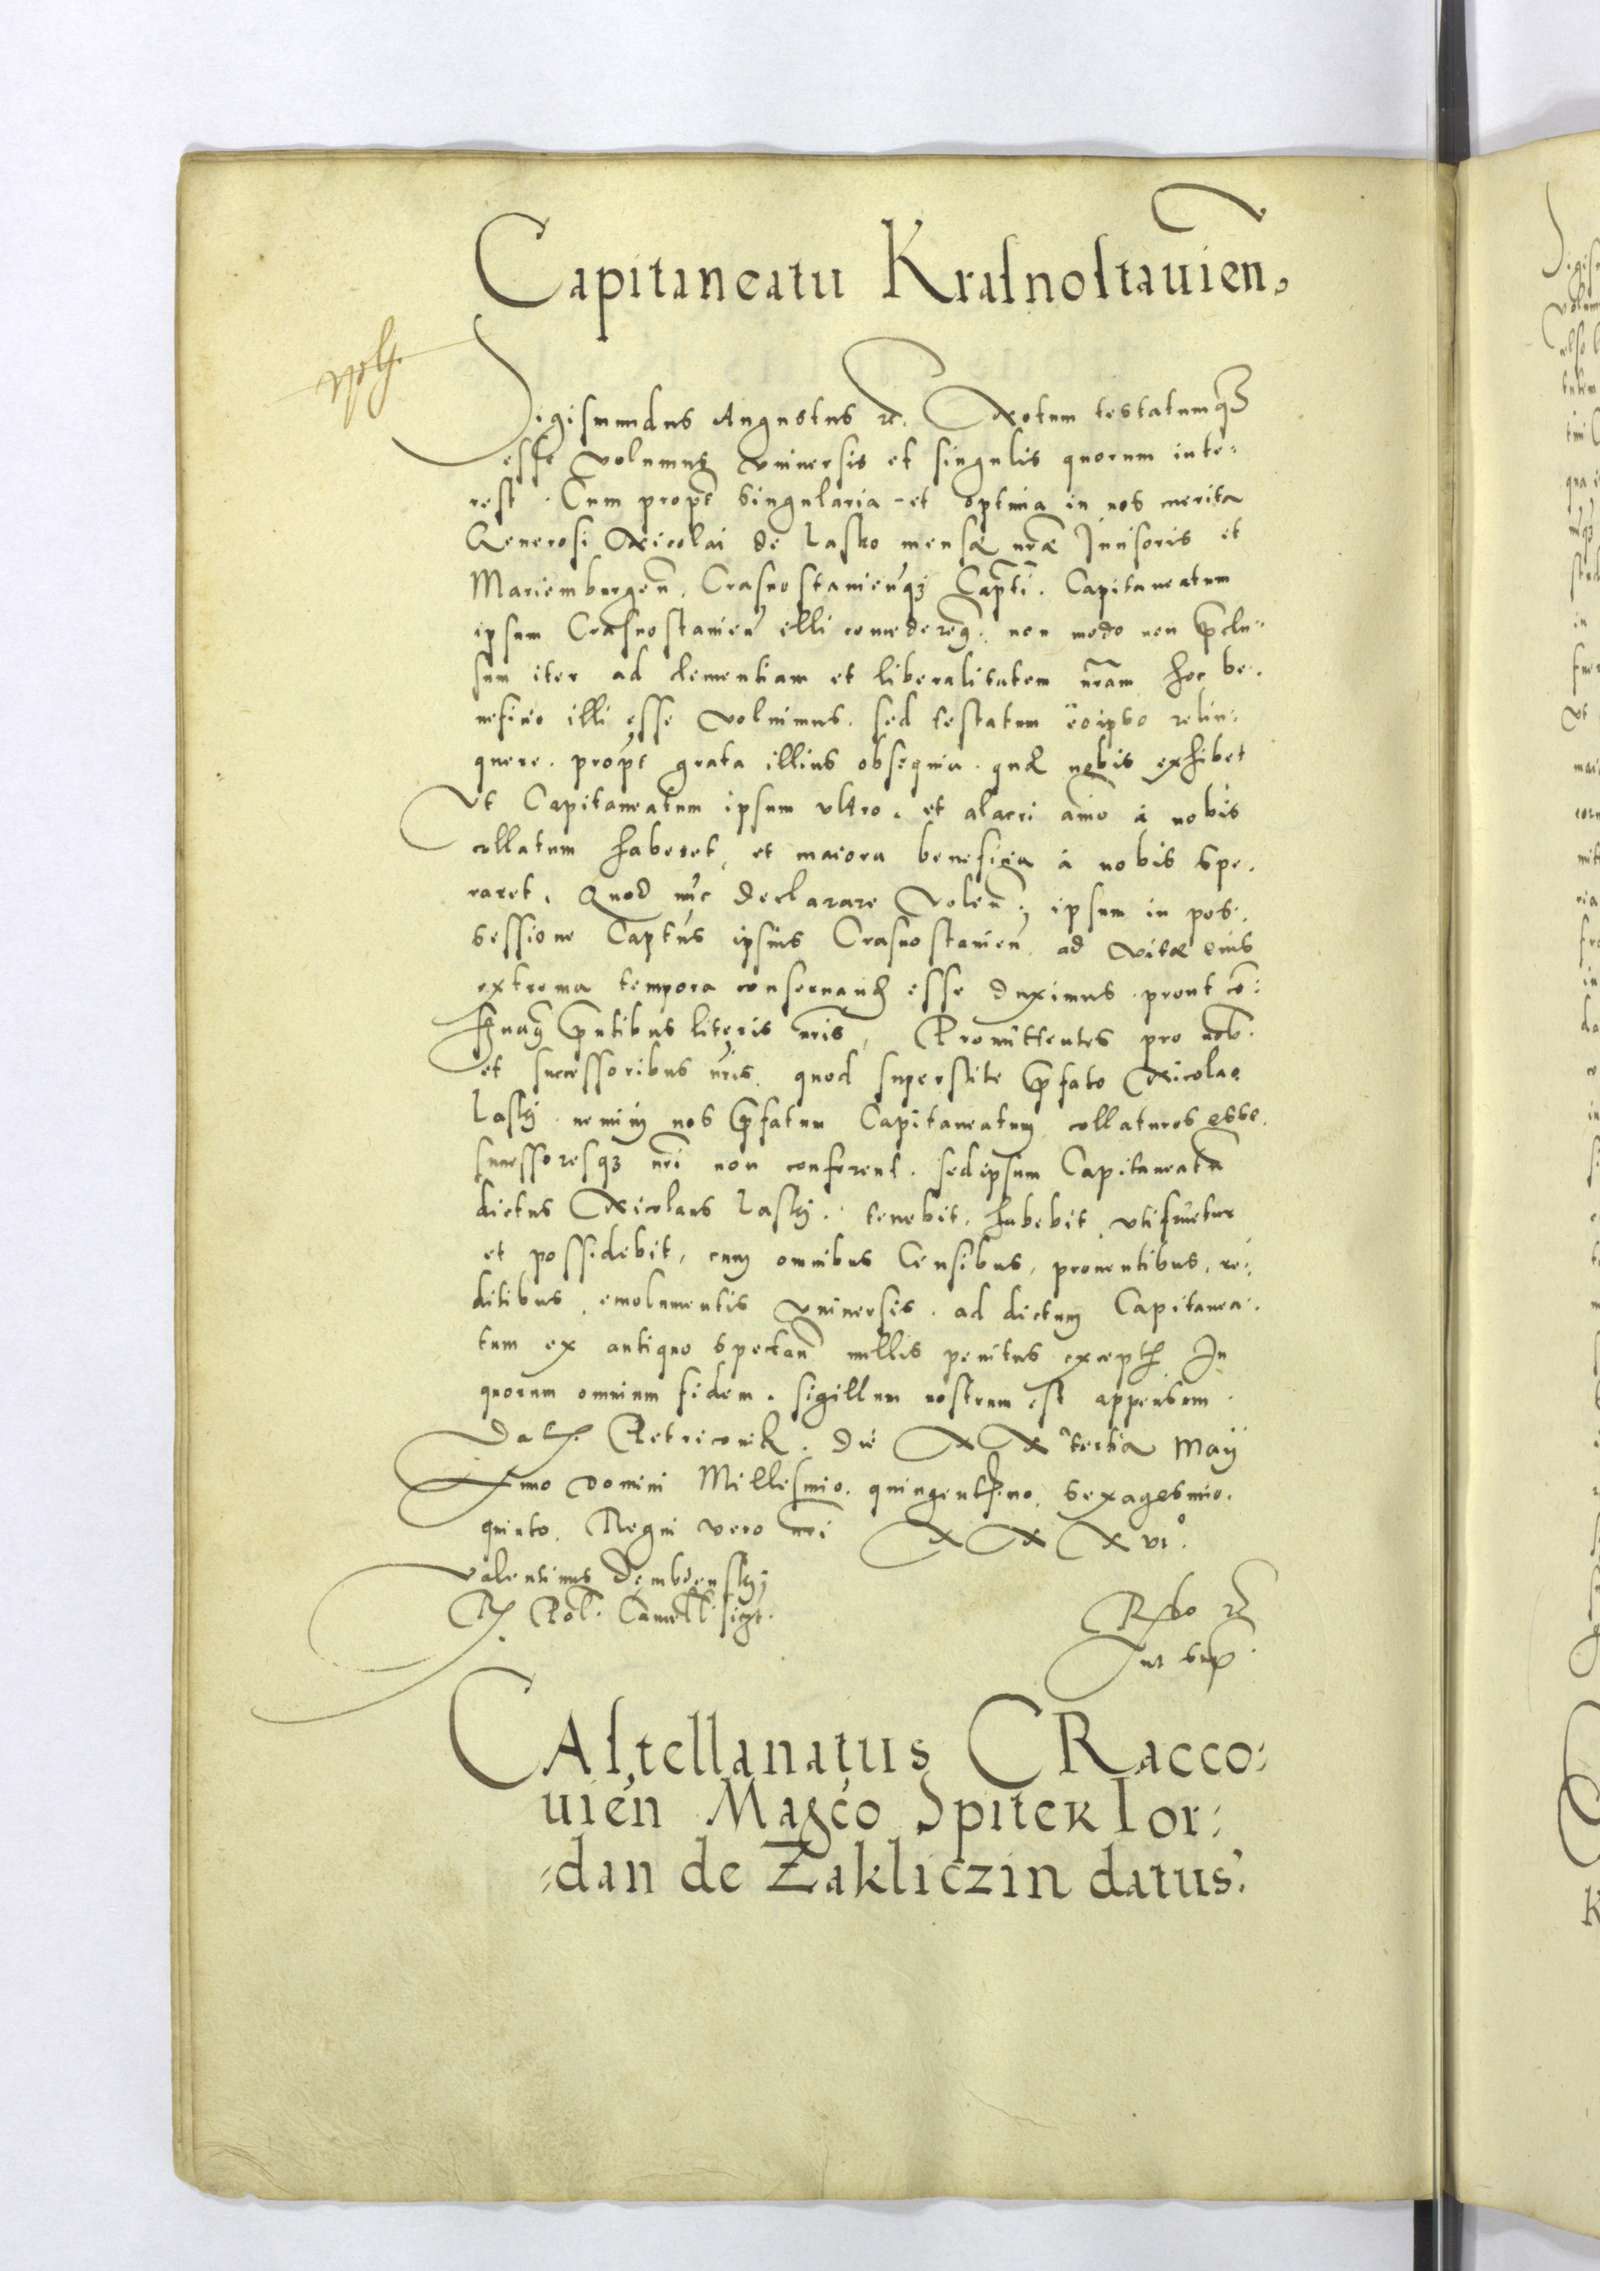 Capitaneatu Krasnostauien.
Sigismundus Augustus etc. Notum testatumq3
esse volumus vniuersis et singulis quorum inte-
rest. Cum propt singularia et optima in nos merita
Generosi Nicolai de Lasko mensæ nræ Incisoris et
Mariemburgen. Crasnostauienq3 Capti. Capitaneatum
ipsum Crasnostauien illi concederem. non modo non pclu-
sum iter ad clementiam et liberalitatem nram hoc be-
neficio illi esse voluimus. sed testatum eoipso relin-
quere. propt grata illius obsequia. quæ nobis exhibet
Vt Capitaneatum ipsum vltro. et alacri aīo à nobis
collatum haberet, et maiora beneficia à nobis spe-
raret. Quod nūc declarare Volen. ipsum in pos-
sessione Captus ipsius Crasnostauien. ad vitæ eius
extrema tempora conseruand esse duximus. prout con-
seruamus pntibus literis nris, Promittentes pro nob.
et successoribus nris. quod superstite pfato Nicolao
Laskj. nemini nos pfatum Capitaneatum collaturos esse.
successoresq3 nri non conferent. sed ipsum Capitaneatū
dictus Nicolaus Laskj. tenebit, habebit, vtifruetur
et possidebit, cum omnibus Censibus, prouentibus, re-
ditibus, emolumentis vniuersis. ad dictum Capitanea-
tum ex antiquo spectan nullis penitus except. In
quorum omnium fidem. sigillum nostrum est appensum.
Dat. Petricouiæ. die XX tertia Maij
Anno Domini Millesimo. quingentesimo. sexagesimo.
quinto. Regni vero nri XXXVI°.
Valentinus Dembienskj
R. Pol. Cancell. sszt.
Relatio etc
vt sup.
CAstellanatus CRacco-
uien Magco Spitek Ior-
-dan de Zakliczin datus.